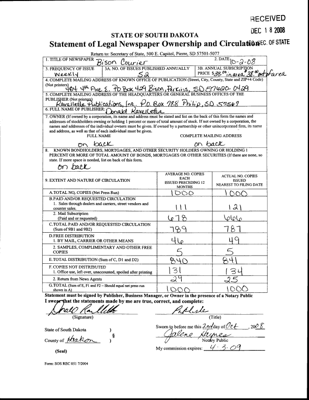 RECEIVED
DEC 18 2008
SEC. OF STATE
STATE OF SOUTH DAKOTA
Statement of Legal Newspaper Ownership and Circulation
Return to: Secretary of State, 500 E. Capitol, Pierre, SD 57501-5077
1. TITLE OF NEWSPAPER Bison Courier
2. DATE 10-2-08
3. FREQUENCY OF ISSUE Weekly
3A. NO. OF ISSUES PUBLISHED ANNUALLY 52
3B. ANNUAL SUBSCRIPTION PRICE
4. COMPLETE MAILING ADDRESS OF KNOWN OFFICE OF PUBLICATION (Street, City, County, State and ZIP+4 Code) (Not printer)
PO Box 429 Bison, Perkins, SD 57620-0429
5. COMPLETE MAILING ADDRESS OF THE HEADQUARTERS OR GENERAL BUSINESS OFFICES OF THE PUBLISHER (Not printer)
Ravellette Publications, Inc., P.O. Box 788 Philip, SD 57567
6. FULL NAME OF PUBLISHER Donald Ravellette
7. OWNER (If owned by a corporation, its name and address must be stated and list on the back of this form the names and addresses of stockholders owning or holding 1 percent or more of total amount of stock. If not owned by a corporation, the names and addresses of the individual owners must be given. If owned by a partnership or other unincorporated firm, its name and address, as well as that of each individual must be given.
FULL NAME COMPLETE MAILING ADDRESS
on back on back
8. KNOWN BONDHOLDERS, MORTGAGEES, AND OTHER SECURITY HOLDERS OWNING OR HOLDING 1 PERCENT OR MORE OF TOTAL AMOUNT OF BONDS, MORTGAGES OR OTHER SECURITIES (If there are none, so state. If more space is needed, list on back of this form.
on back
9. EXTENT AND NATURE OF CIRCULATION
AVERAGE NO. COPIES EACH ISSUED PRECEDING 12 MONTHS
ACTUAL NO. COPIES ISSUED NEAREST TO FILING DATE
A. TOTAL NO. COPIES (Net Press Run) 1000 1000
B. PAID AND/OR REQUESTED CIRCULATION
1. Sales through dealers and carriers, street vendors and counter sales. 111 121
2. Mail Subscription (Paid and or requested) 678 666
C. TOTAL PAID AND/OR REQUESTED CIRCULATION (Sum of 9B1 and 9B2) 789 787
D. FREE DISTRIBUTION
1. BY MAIL, CARRIER OR OTHER MEANS 46 49
2. SAMPLES, COMPLIMENTARY AND OTHER FREE COPIES 5 5
E. TOTAL DISTRIBUTION (Sum of C, D1 and D2) 840 841
F. COPIES NOT DISTRIBUTED
1. Office use, left over, unaccounted, spoiled after printing 131 134
2. Return from News Agents 29 25
G. TOTAL (Sum of E, F1 and F2 - Should equal net press run shown in A) 1000 1000
Statement must be signed by Publisher, Business Manager, or Owner in the presence of a Notary Public
I swear that the statements made by me are true, correct, and complete:
(Signature) (Title)
State of South Dakota )
County of Haakon )
Sworn to before me this 2nd day of Oct 2008
Notary Public
(Seal)
My commission expires: 4-3-09